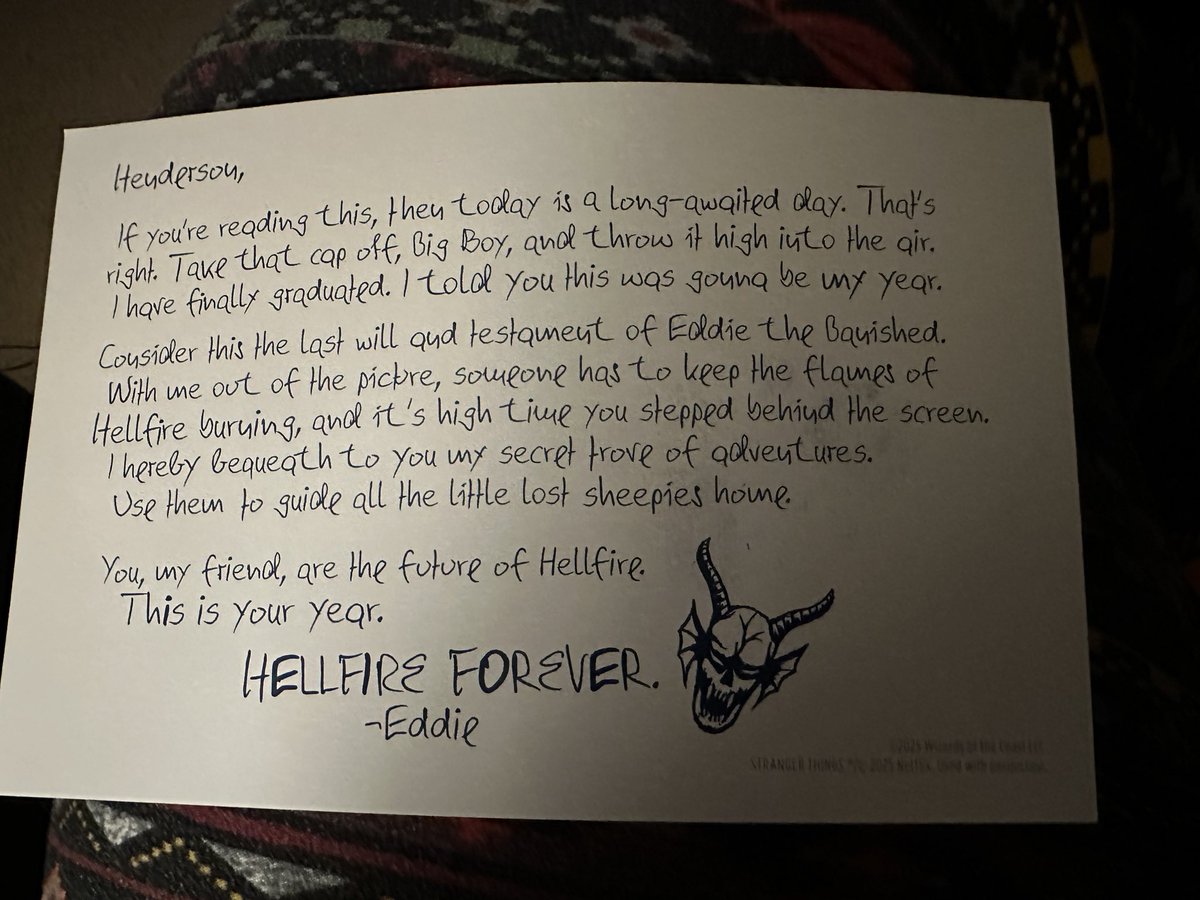 Henderson,
If you're reading this, then today is a long-awaited day. That's
right. Take that cap off, Big Boy, and throw it high into the air.
I have finally graduated. I told you this was gonna be my year.
Consider this the last will and testament of Eddie the Banished.
With me out of the pictre, someone has to keep the flames of
Hellfire burning, and it's high time you stepped behind the screen.
I hereby bequeath to you my secret trove of adventures.
Use them to guide all the little lost sheepies home.
You, my friend, are the future of Hellfire.
This is your year.
HELLFIRE FOREVER.
-Eddie
©2025 Wizards of the Coast LLC.
STRANGER THINGS ™/© 2025 Netflix. Used with permission.